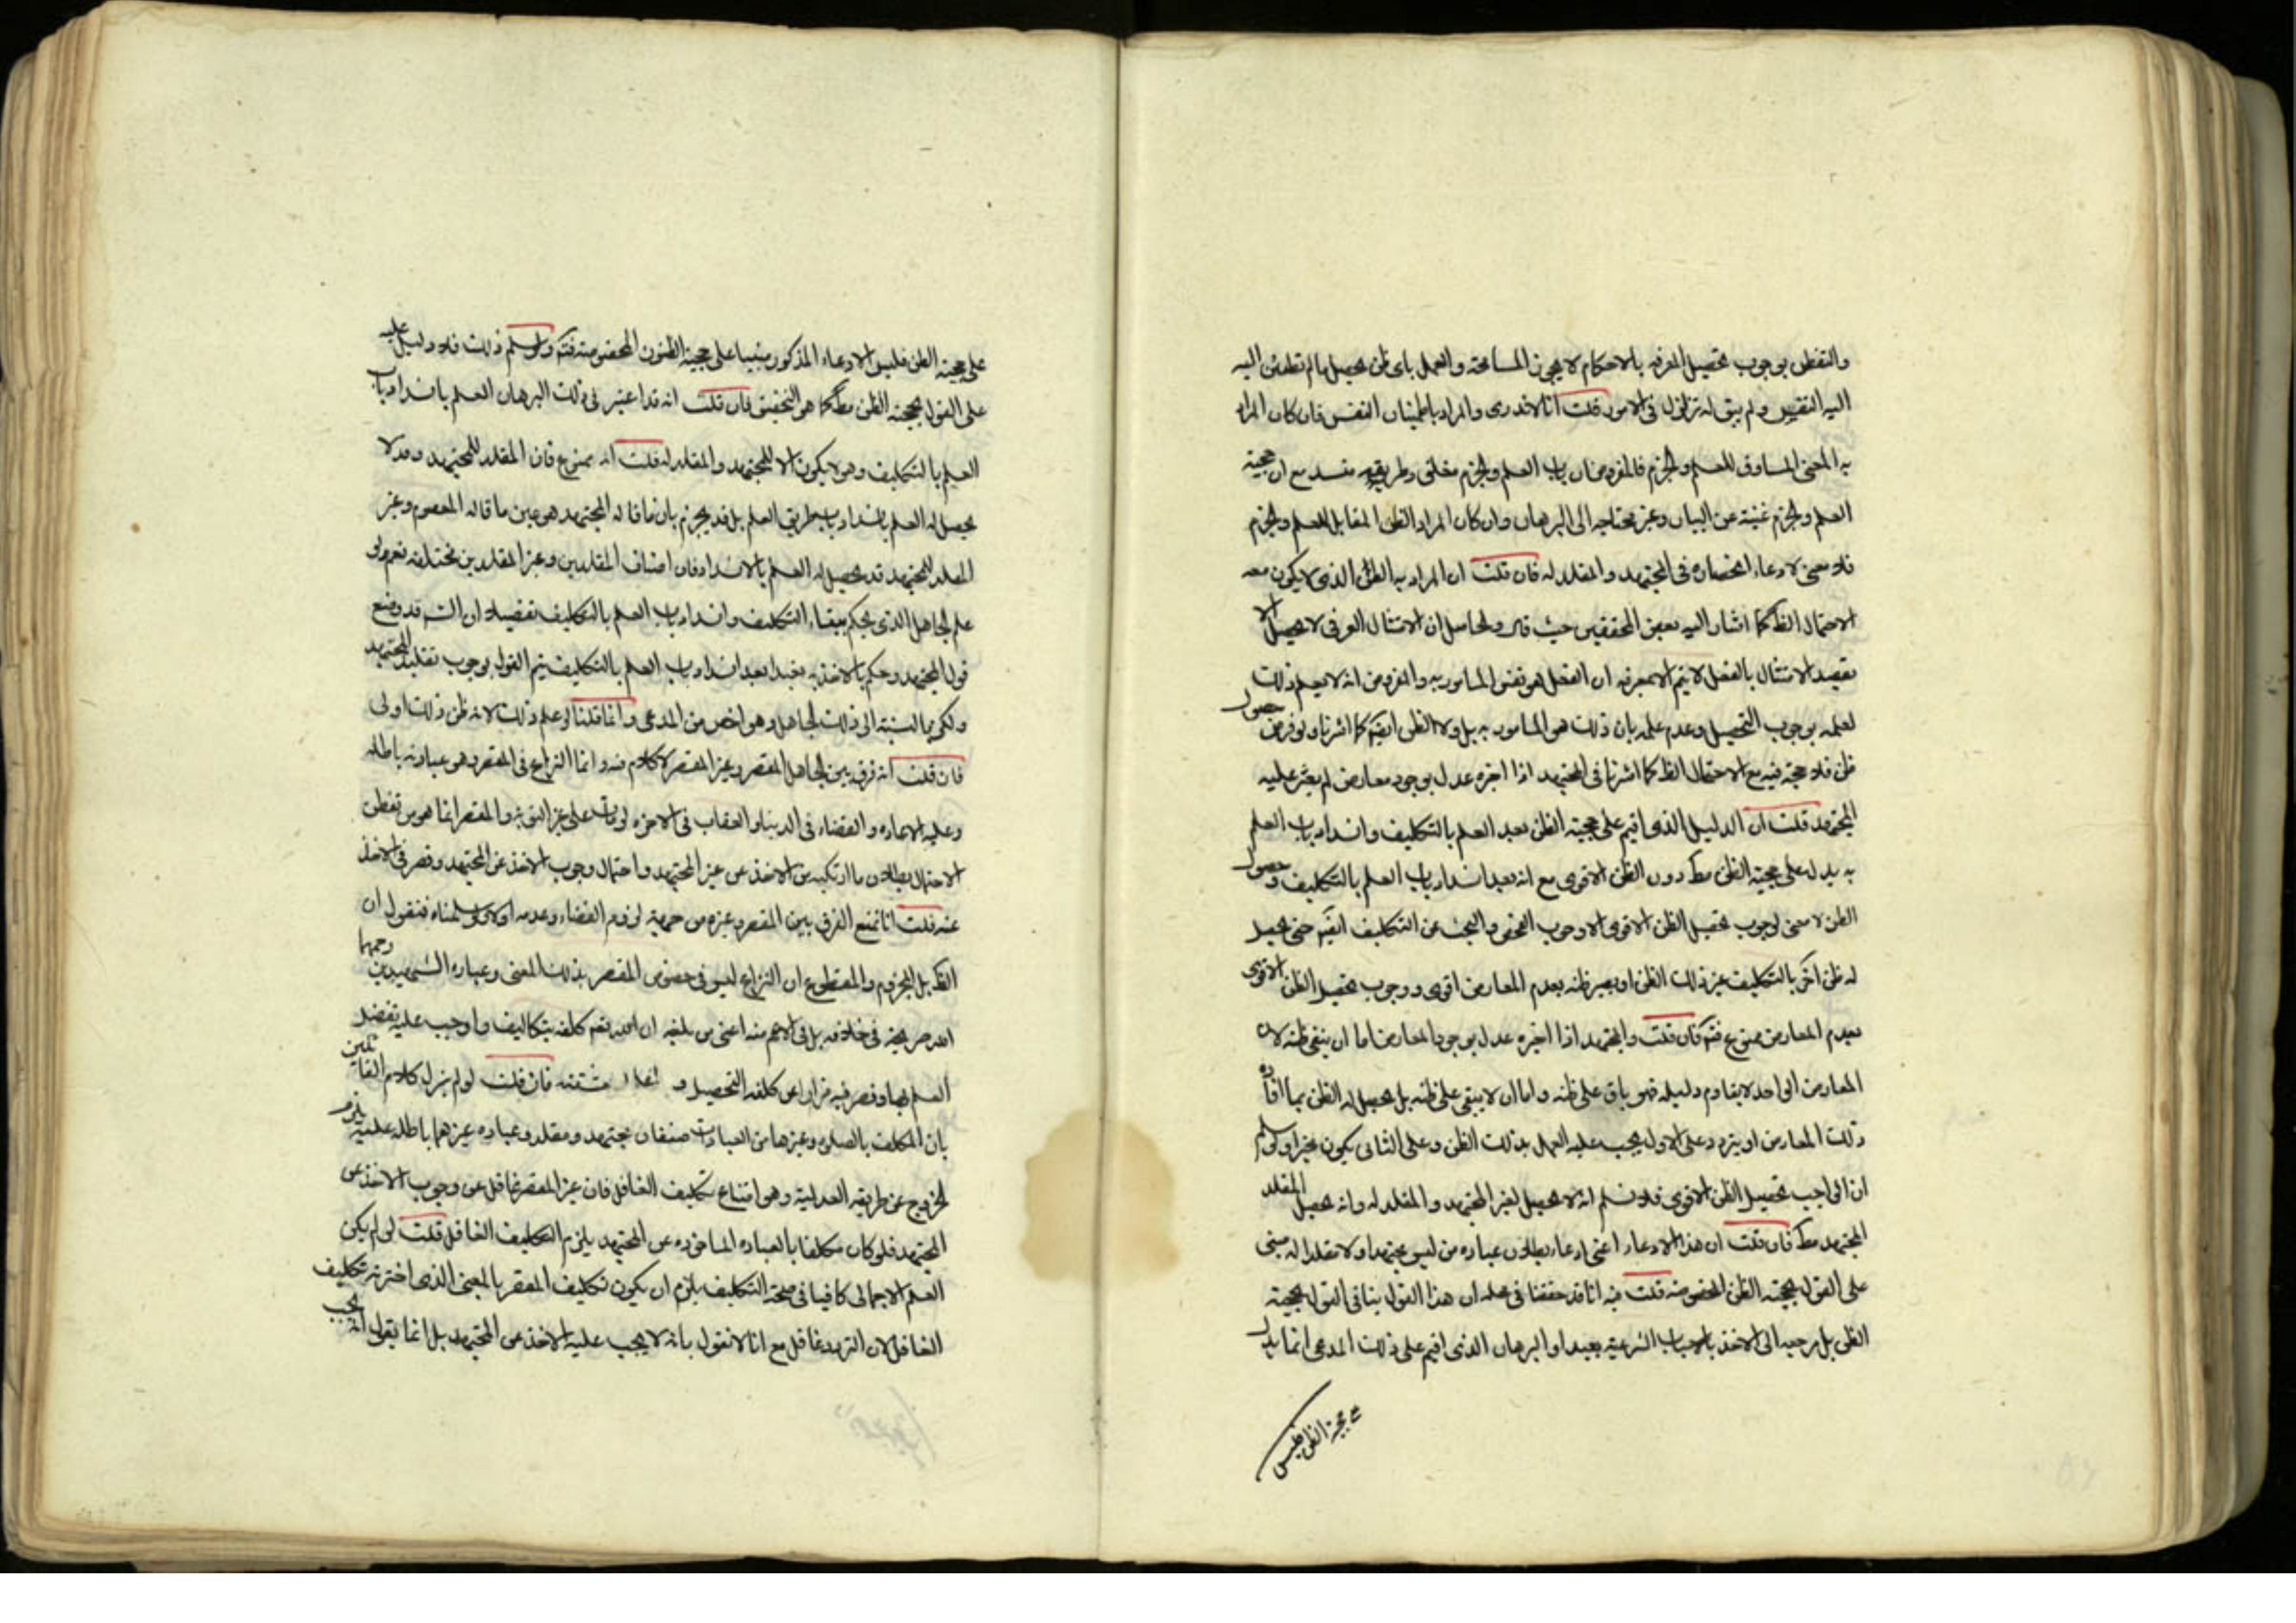 والتفطن بوجوب تحصيل المعرفه بالاحكام لا يجوز المسامحة والعمل باى ظن يحصل مالم تطمئن اليه
اليه النفس ولم يبق له تزلزل فى الامور قلت انا لا ندرى والمراد باطمينان النفس فان كان المراد
به المعنى المساوق للعلم والجزم فالمفروض ان باب العلم والجزم مغلق وطريقه منسد مع ان حجية
العلم والجزم غنية عن البيان وغير محتاجه الى البرهان وان كان المراد الظن المقابل للعلم والجزم
فلا معنى لادعاء انحصاره فى المجتهد والمقلد له فان قلت ان المراد به الظن الذى لا يكون معه
الاحتمال الظ كما اشار اليه بعض المحققين حيث قال والحاصل ان الامتثال العرفى لا يحصل الا
بقصد الامتثال بالفعل لا يتم الا بمعرفه ان الفعل هو نفس المامور به والمفروض انه لا يعلم ذلك
لعلمه بوجوب التحصيل وعدم علمه بان ذلك هو المامور به بل ولا الظن ايضا كما اشرنا ولو فرض حصول
ظن فلا حجة فيه مع الاحتمال الظ كما اشرنا فى المجتهد اذا اخبره عدل بوجود معارض لم يعثر عليه
المجتهد قلت ان الدليل الذى اقيم على حجية الظن بعد العلم بالتكليف وانسداد باب العلم
به يدل على حجية الظن مط دون الظن الاقوى مع انه بعد انسداد باب العلم بالتكليف وحصول
الظن لا معنى لوجوب تحصيل الظن الاقوى الا وجوب الفحص والبحث عن التكليف ايضا حتى يحصل
له ظن اخر بالتكليف غير ذلك الظن او يصير ظنه بعدم المعارض اقوى ووجوب تحصيل الظن الاقوى
بعدم المعارض ممنوع فتم فان قلت والمجتهد اذا اخبره عدل بوجود المعارض اما ان يبقى ظنه لان
المعارض الواحد لا يقاوم دليله فهو باق على ظنه واما ان لا يبقى على ظنه بل يحصل له الظن بما افاده
ذلك المعارض او يتردد وعلى الاول يجب عليه العمل بذلك الظن وعلى الثانى يكون مخيرا ولو سلم
ان الواجب تحصيل الظن الاقوى فلا نسلم انه لا يحصل لغير المجتهد والمقلد له وانه يحصل المقلد
المجتهد مط فان قلت ان هذا الادعاء اعنى ادعاء بطلان عبادة من ليس مجتهدا ولا مقلدا له مبنى
على القول بحجية الظن المخصوصة قلت فيه انا قد حققنا فى محله ان هذا القول ينافى القول بحجية
الظن بل مرجعه الى الاخذ بالاسباب الشرعية تعبدا والبرهان الذى اقيم على ذلك المدعى انما يدل
على حجية الظن فليس
على حجية الظن فليس الادعاء المذكور مبنيا على حجية الظنون المخصوصة فتم ولو سلم ذلك فلا دليل عليه
على القول بحجية الظن مط كما هو التحقيق فان قلت انه قد اعتبر فى ذلك البرهان العلم بانسداد باب
العلم بالتكليف وهو لا يكون الا للمجتهد والمقلد له قلت انه ممنوع فان المقلد للمجتهد وقد لا
يحصل له العلم بانسداد باب طريق العلم بل قد يجزم بان ما قاله المجتهد هو عين ما قاله المعصوم وغير
المقلد للمجتهد قد يحصل له العلم بالانسداد فان اصناف المقلدين وغير المقلدين مختلفه نعم لو
علم الجاهل الذى يحكم ببقاء التكليف وانسداد باب العلم بالتكليف تفصيلا ان الش قد وضع
قول المجتهد وحكم بالاخذ به تعبدا بعد انسداد باب العلم بالتكليف يتم القول بوجوب تقليد المجتهد
ولكن بالنسبة الى ذلك الجاهل وهو اخص من المدعى وانما قلنا لو علم ذلك لانه ظن ذلك اولى
فان قلت انه فرق بين الجاهل المقصر وغير المقصر لا كلام فيه وانما النزاع فى المقصر وهو عبادته باطله
وعليه الاعاده والقضاء فى الدنيا والعقاب فى الاخره لو مات على غير التوبة والمقصر انما هو من تفطن
الاحتمال بطلان ما ارتكبه من الاخذ عن غير المجتهد واحتمال وجوب الاخذ عن المجتهد وقصر فى الاخذ
عنه قلت انا نمنع الفرق بين المقصر وغيره من جهة لزوم القضاء وعدمه اولا ولو سلمناه فنقول ان
الظ بل المجزوم والمقطوع ان النزاع ليس فى خصوص المقصر بذلك المعنى وعباره الشهيدين رحمهما
الله صريحة فى خلافه بل فى الاعم منه اعنى من بلغه ان الله تعم كلفه بتكاليف واوجب عليه تفضل
العلم بها وقصر فيه فرارا عن كلفه التحصيل و مشقته فان قلت لو لم ينزل كلام القائلين
بان المكلف بالصلوه وغيرها من العبادات صنفان مجتهد ومقلد وعباده غيرهما باطله عليه يلزم
الخروج عن طريقه العدلية وهو امتناع تكليف الغافل فان غير المقصر غافل عن وجوب الاخذ عن
المجتهد فلو كان مكلفا بالعباده الماخوذه عن المجتهد يلزم التكليف الغافل قلت لو لم يكن
العلم الاجمالى كافيا فى صحة التكليف يلزم ان يكون تكليف المقصر بالمعنى الذى اخترته تكليف
الغافل لان التردد غافل مع انا لا نقول بانه لا يجب عليه الاخذ عن المجتهد بل انما يقول انه يجب